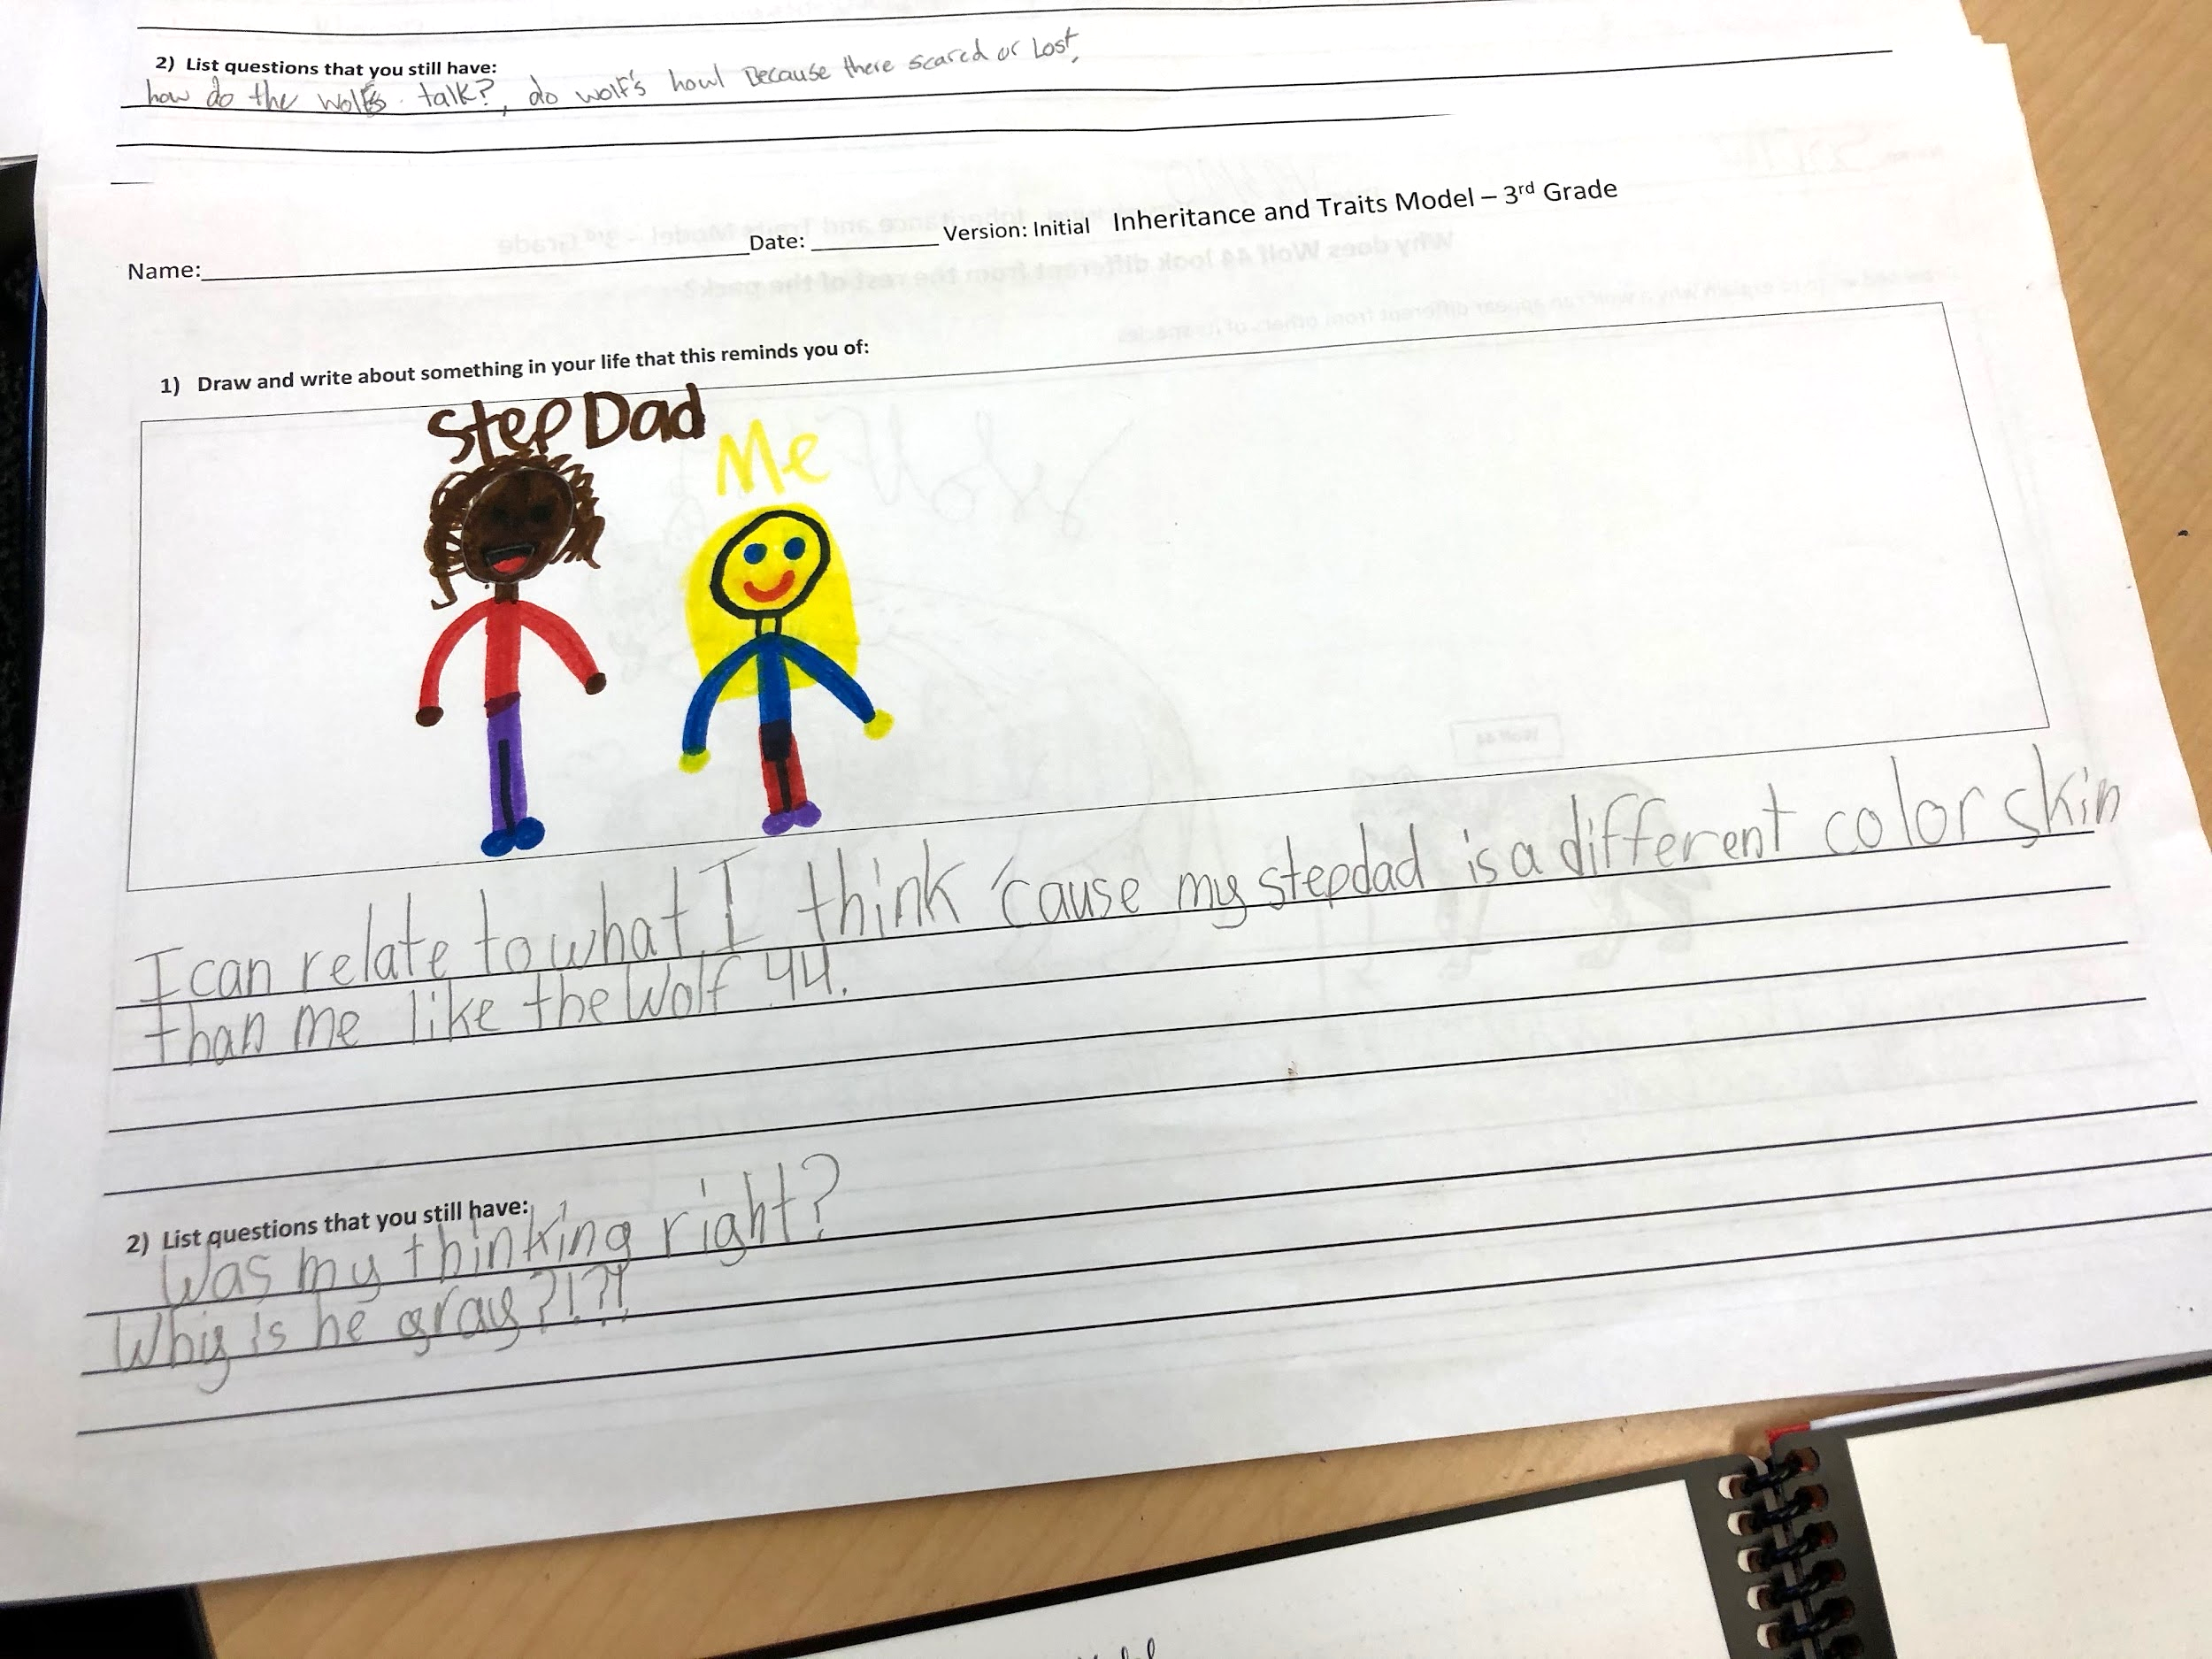 2) List questions that you still have:
how do the wolfs talk?, do wolf's howl Because there scared or Lost,
Inheritance and Traits Model – 3rd Grade
Name: Date: Version: Initial
1) Draw and write about something in your life that this reminds you of:
Step Dad
Me
I can relate to what I think 'cause my stepdad is a different color skin
than me like the Wolf 44.
2) List questions that you still have:
Was my thinking right?
Why is he gray?!?!